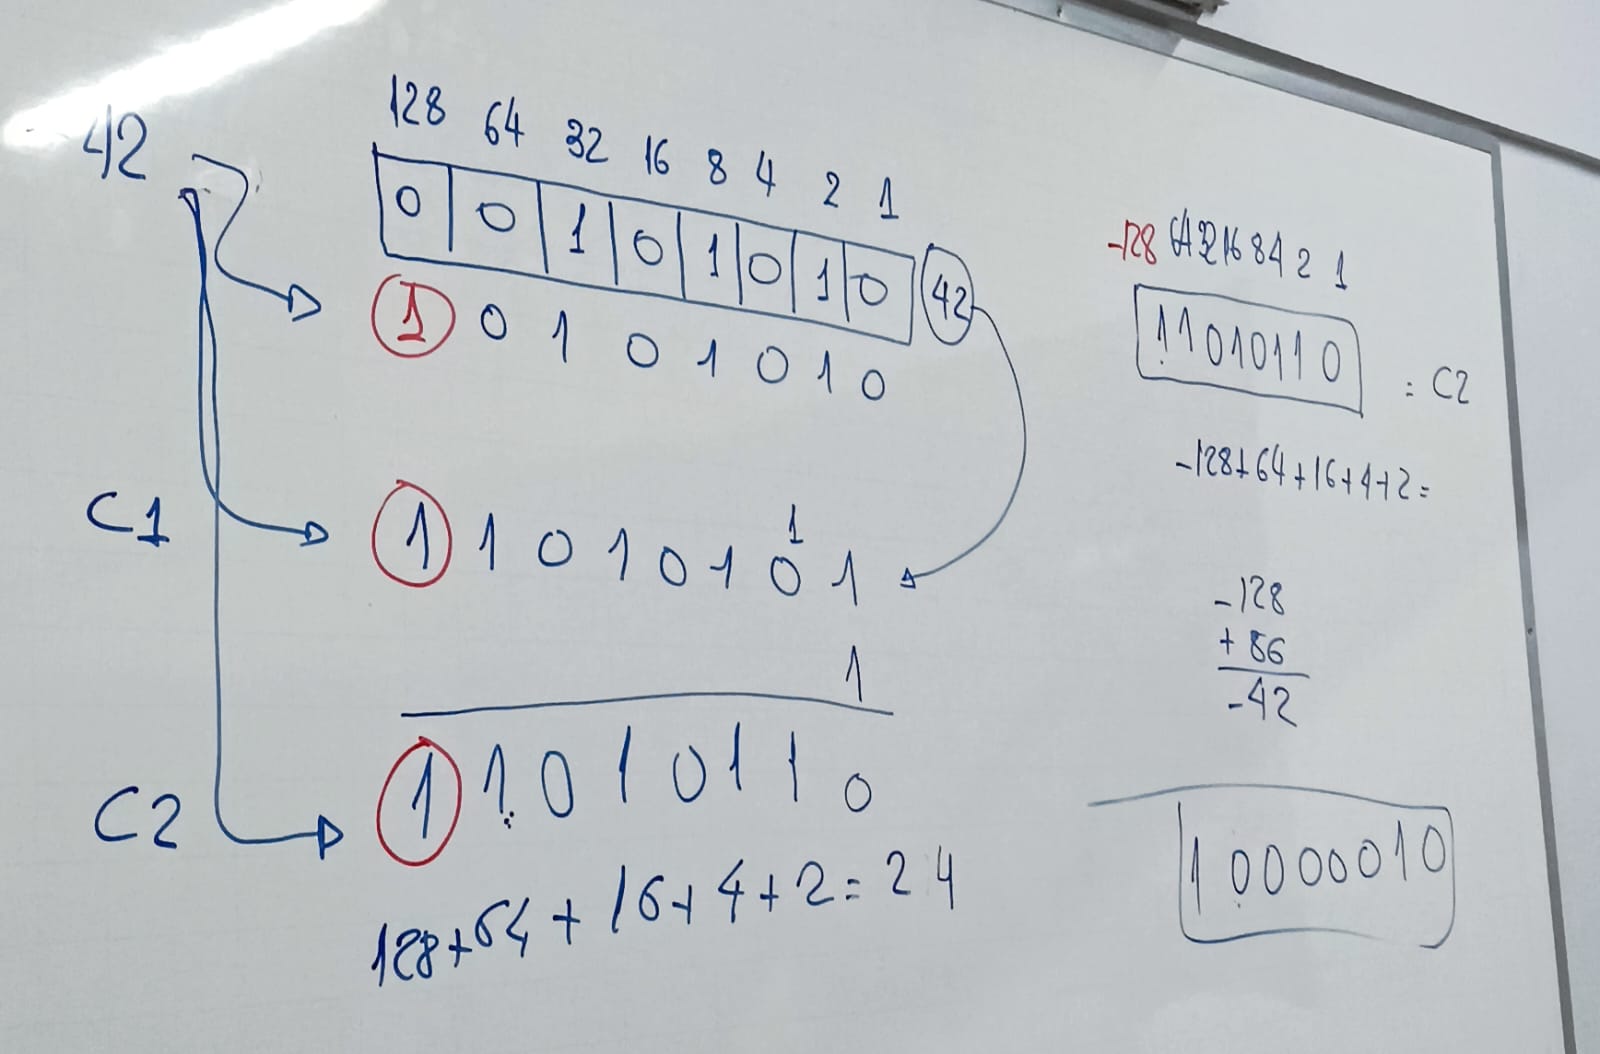 42
128 64 32 16 8 4 2 1
0 0 1 0 1 0 1 0 42
1 0 1 0 1 0 1 0
C1
1
1 1 0 1 0 1 0 1
1
C2
1 1 0 1 0 1 1 0
128+64+16+4+2=24
-128 64 32 16 8 4 2 1
11010110 = C2
-128+64+16+4+2=
-128
+ 86
-42
10000010